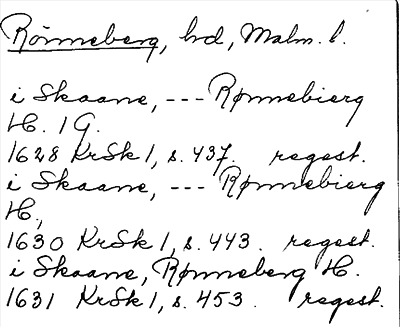 Rönneberg, hd, Malm. l.
i Skaane, --- Rønnebierg
H. 1 G.
1628 KrSk 1, s. 437. regest.
i Skaane, --- Rønnebierg
H.,
1630 KrSk 1, s. 443. regest.
i Skaane, Rønneberg H.
1631 KrSk 1, s. 453. regest.